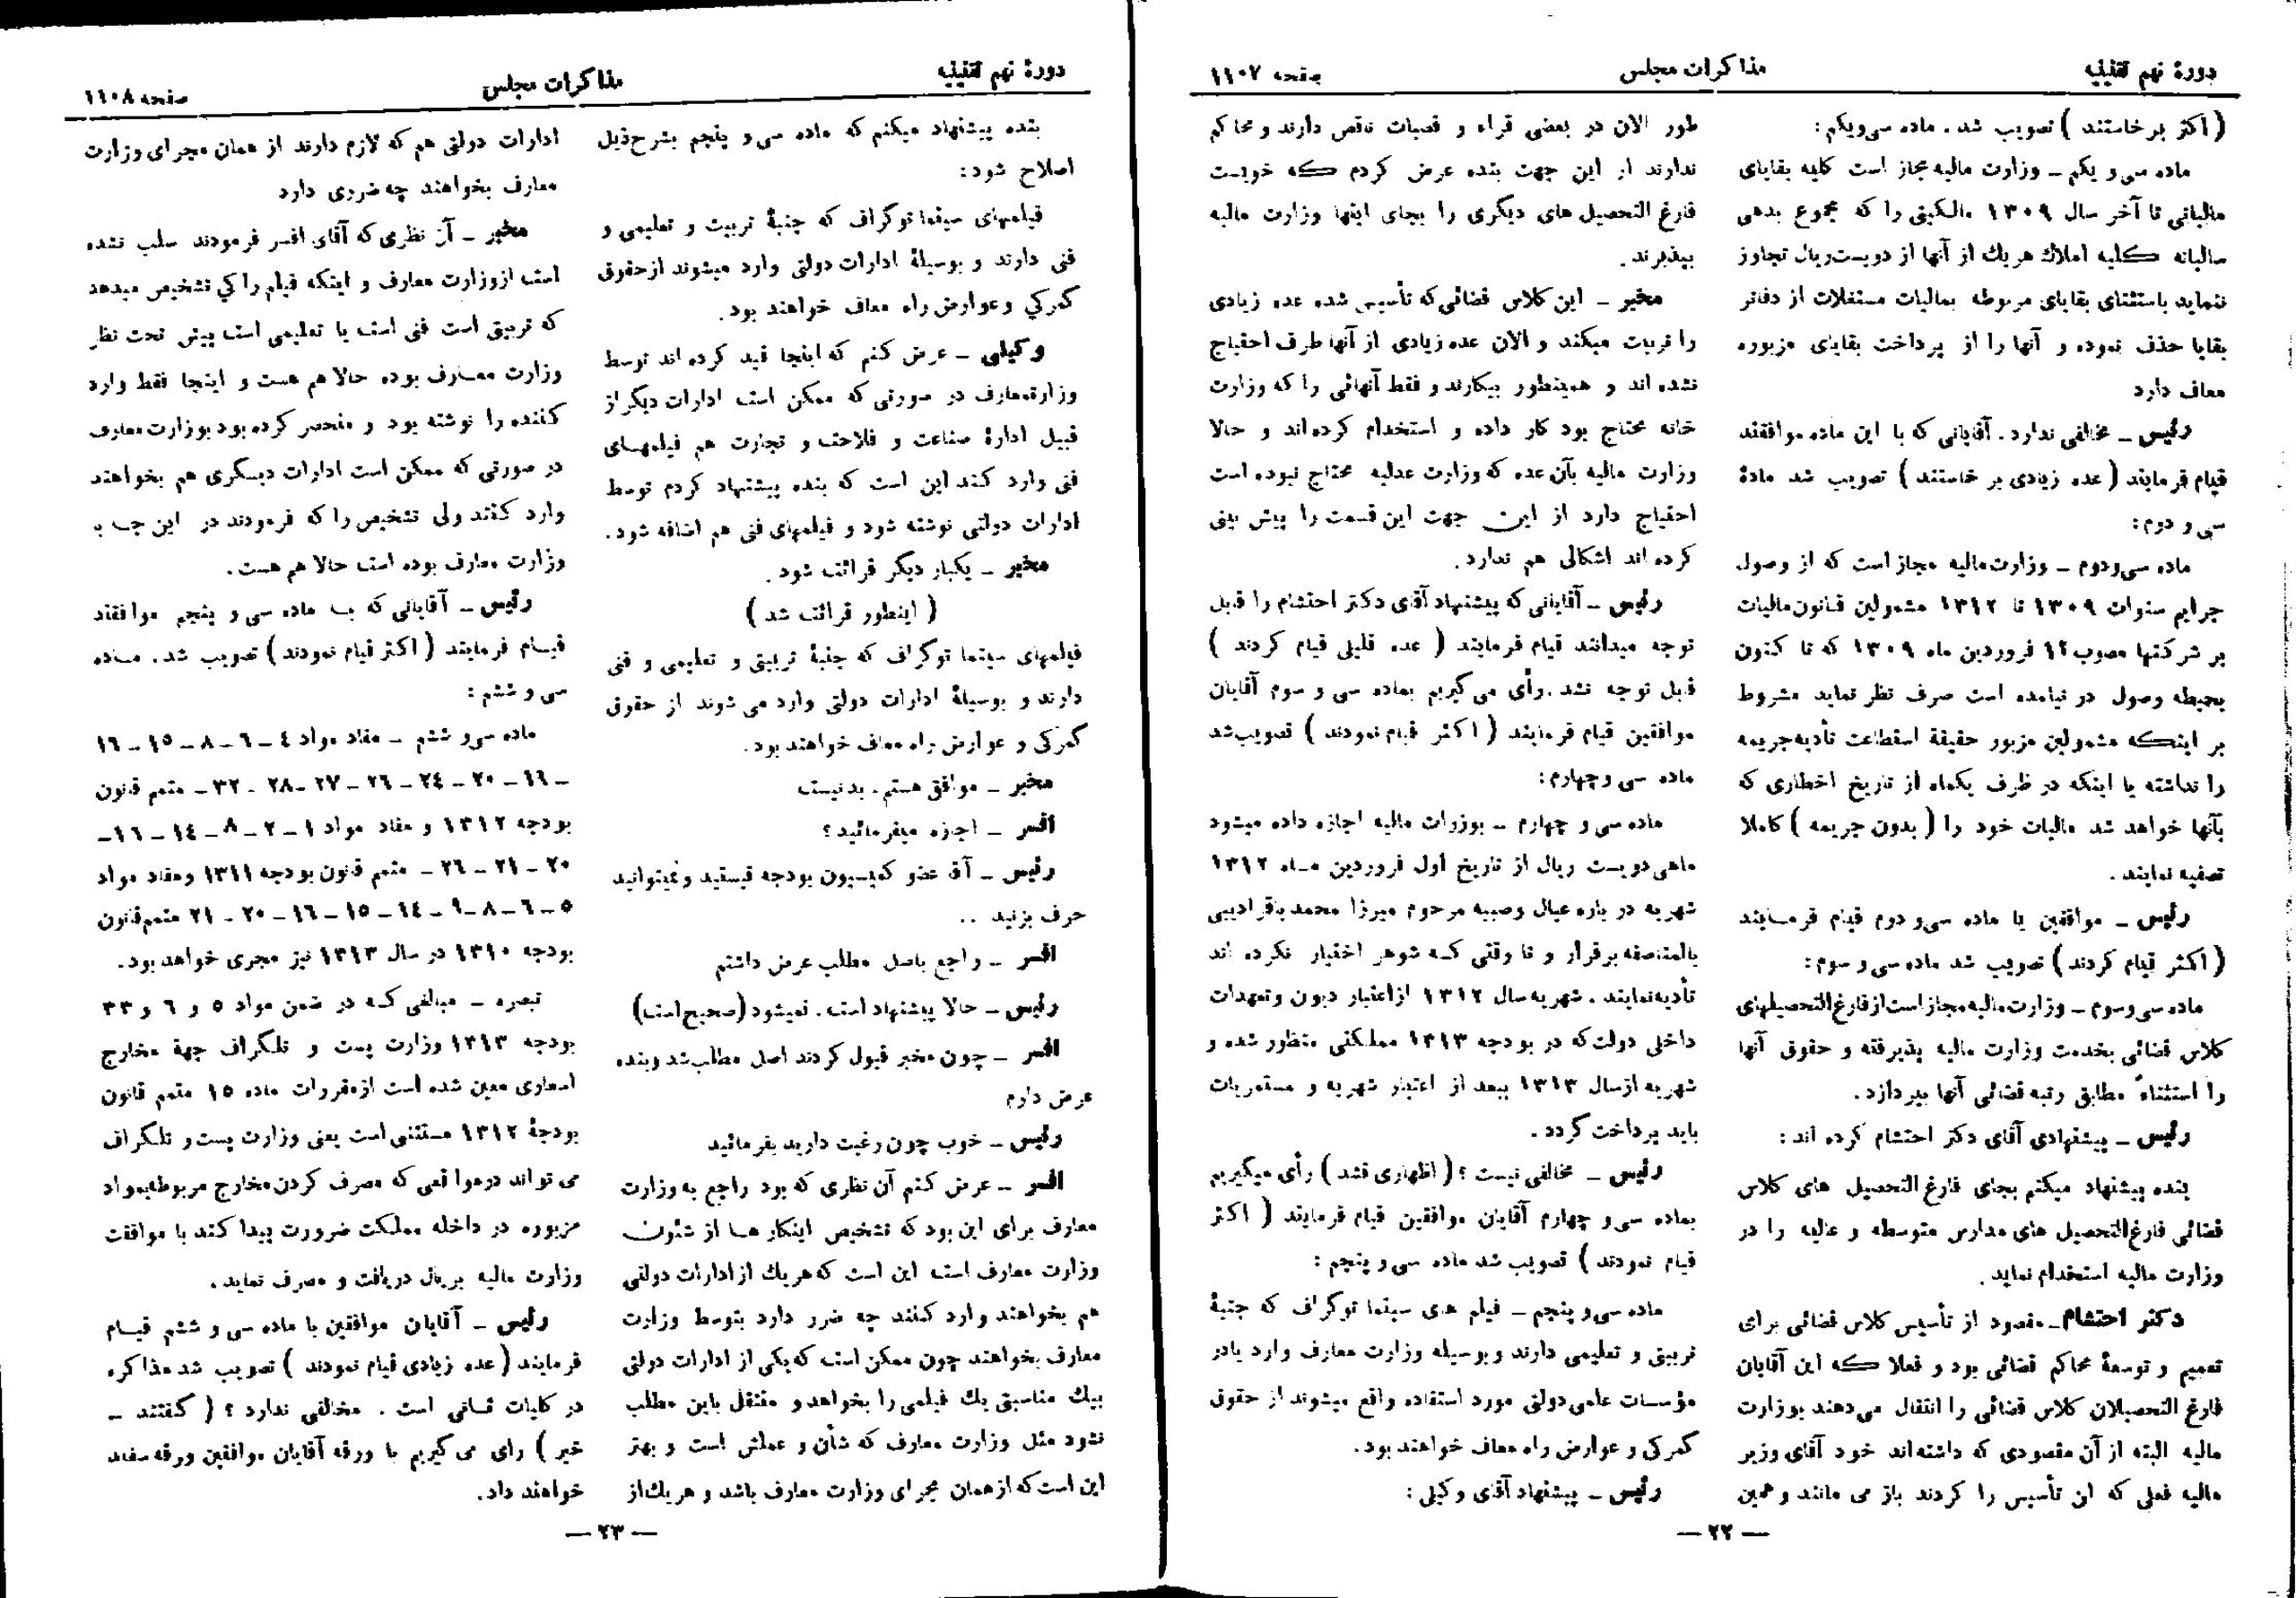 دورهٔ نهم تقنینیه
مذاکرات مجلس
صفحه ۱۱۰۷
(اکثر برخاستند) تصویب شد. ماده سی‌ویکم:
ماده سی و یکم ـ وزارت مالیه مجاز است کلیه بقایای
مالیاتی تا آخر سال ۱۳۰۹ مالکینی را که مجموع بدهی
سالیانه کلیه املاك هریك از آنها از دویست‌ریال تجاوز
ننماید باستثنای بقایای مربوطه بمالیات مستغلات از دفاتر
بقایا حذف نموده و آنها را از پرداخت بقایای مزبوره
معاف دارد
رئیس ـ مخالفی ندارد. آقایانی که با این ماده موافقند
قیام فرمایند (عده زیادی بر خاستند) تصویب شد مادهٔ
سی و دوم:
ماده سی‌ودوم ـ وزارت‌مالیه مجاز است که از وصول
جرایم سنوات ۱۳۰۹ تا ۱۳۱۲ مشمولین قانون‌مالیات
بر شرکتها مصوب ۱۲ فروردین ماه ۱۳۰۹ که تا کنون
بحیطه وصول در نیامده است صرف نظر نماید مشروط
بر اینکه مشمولین مزبور حقیقة استطاعت تأدیه‌جریمه
را نداشته یا اینکه در ظرف یکماه از تاریخ اخطاری که
بآنها خواهد شد مالیات خود را (بدون جریمه) کاملا
تصفیه نمایند.
رئیس ـ موافقین با ماده سی‌و دوم قیام فرمـایند
(اکثر قیام کردند) تصویب شد ماده سی و سوم:
ماده سی‌وسوم ـ وزارت‌مالیه‌مجاز است‌از فارغ‌التحصیلهای
کلاس قضائی بخدمت وزارت مالیه پذیرفته و حقوق آنها
را استثناءً مطابق رتبه قضائی آنها بپردازد.
رئیس ـ پیشنهادی آقای دکتر احتشام کرده اند:
بنده پیشنهاد میکنم بجای فارغ التحصیل های کلاس
قضائی فارغ‌التحصیل های مدارس متوسطه و عالیه را در
وزارت مالیه استخدام نماید.
دکتر احتشام ـ مقصود از تأسیس کلاس قضائی برای
تعمیم و توسعهٔ محاکم قضائی بود و فعلا که این آقایان
فارغ التحصیلان کلاس قضائی را انتقال می‌دهند بوزارت
مالیه البته از آن مقصودی که داشته‌اند خود آقای وزیر
مالیه فعلی که این تأسیس را کردند باز می مانند و همین
طور الان در بعضی قراء و قصبات ناقص دارند و محاکم
ندارند از این جهت بنده عرض کردم که خوبست
فارغ التحصیل های دیگری را بجای اینها وزارت مالیه
بپذیرند.
مخبر ـ این کلاس قضائی‌که تأسیس شده عده زیادی
را تربیت میکند و الان عده زیادی از آنها طرف احتیاج
نشده اند و همینطور بیکارند و فقط آنهائی را که وزارت
خانه محتاج بود کار داده و استخدام کرده‌اند و حالا
وزارت مالیه بآن عده که وزارت عدلیه محتاج نبوده است
احتیاج دارد از این جهت این قسمت را پیش بینی
کرده اند اشکالی هم ندارد.
رئیس ـ آقایانی که پیشنهاد آقای دکتر احتشام را قابل
توجه میدانند قیام فرمایند (عده قلیلی قیام کردند)
قابل توجه نشد. رأی می گیریم بماده سی و سوم آقایان
موافقین قیام فرمایند (اکثر قیام نمودند) تصویب‌شد
ماده سی و چهارم:
ماده سی و چهارم ـ بوزارت مالیه اجازه داده میشود
ماهی دویست ریال از تاریخ اول فروردین مـاه ۱۳۱۲
شهریه در باره عیال وصبیه مرحوم میرزا محمد باقر ادیبی
بالمناصفه برقرار و تا وقتی کـه شوهر اختیار نکرده اند
تأدیه نمایند. شهریه سال ۱۳۱۲ از اعتبار دیون و تعهدات
داخلی دولت که در بودجه ۱۳۱۳ مملکتی منظور شده و
شهریه از سال ۱۳۱۳ ببعد از اعتبار شهریه و مستمریات
باید پرداخت گردد.
رئیس ـ مخالفی نیست؟ (اظهاری نشد) رأی میگیریم
بماده سی‌و چهارم آقایان موافقین قیام فرمایند (اکثر
قیام نمودند) تصویب شد ماده سی و پنجم:
ماده سی‌و پنجم ـ فیلم های سینما توگراف که جنبهٔ
تربیتی و تعلیمی دارند و بوسیله وزارت معارف وارد یادر
مؤسسات علمی‌دولتی مورد استفاده واقع میشوند از حقوق
گمرکی و عوارض راه معاف خواهند بود.
رئیس ـ پیشنهاد آقای وکیلی:
— ۲۲ —
دورهٔ نهم تقنینیه
مذاکرات مجلس
صفحه ۱۱۰۸
بنده پیشنهاد میکنم که ماده سی و پنجم بشرح‌ذیل
اصلاح شود:
فیلمهای سینما توگراف که جنبهٔ تربیت و تعلیمی و
فنی دارند و بوسیلهٔ ادارات دولتی وارد میشوند از حقوق
گمرکي و عوارض راه معاف خواهند بود.
وکیلی ـ عرض کنم که اینجا قید کرده اند توسط
وزارتمعارف در صورتی که ممکن است ادارات دیگر از
قبیل ادارهٔ صناعت و فلاحت و تجارت هم فیلمهـای
فنی وارد کنند این است که بنده پیشنهاد کردم توسط
ادارات دولتی نوشته شود و فیلمهای فنی هم اضافه شود.
مخبر ـ یکبار دیگر قرائت شود.
(اینطور قرائت شد)
فیلمهای سینما توگراف که جنبهٔ تربیتی و تعلیمی و فنی
دارند و بوسیلهٔ ادارات دولتی وارد می شوند از حقوق
گمرکی و عوارض راه معاف خواهند بود.
مخبر ـ موافق هستم. بد نیست
افسر ـ اجازه میفرمائید؟
رئیس ـ آقا عضو کمیسیون بودجه نیستید و نمیتوانید
حرف بزنید ..
افسر ـ راجع باصل مطلب عرض داشتم
رئیس ـ حالا پیشنهاد است. نمیشود (صحیح است)
افسر ـ چون مخبر قبول کردند اصل مطلب‌شد و بنده
عرض دارم
رئیس ـ خوب چون رغبت دارید بفرمائید
افسر ـ عرض کنم آن نظری که بود راجع به وزارت
معارف برای این بود که تشخیص اینکار هـا از شئون
وزارت معارف است این است که هریك از ادارات دولتی
هم بخواهند وارد کنند چه ضرر دارد بتوسط وزارت
معارف بخواهند چون ممکن است که یکی از ادارات دولتی
بیك مناسبتی یك فیلمی را بخواهد و منتقل باین مطلب
نشود مثل وزارت معارف که شأن و عملش است و بهتر
این است‌که از همان مجرای وزارت معارف باشد و هریك‌از
ادارات دولتی هم که لازم دارند از همان مجرای وزارت
معارف بخواهند چه ضرری دارد
مخبر ـ آن نظری که آقای افسر فرمودند سلب نشده
است از وزارت معارف و اینکه فیلم را کي تشخیص میدهد
که تربیتی است فنی است یا تعلیمی است پیش تحت نظر
وزارت معـارف بوده حالا هم هست و اینجا فقط وارد
کننده را نوشته بود و منحصر کرده بود بوزارت معارف
در صورتی که ممکن است ادارات دیـگری هم بخواهند
وارد کنند ولی تشخیص را که فرمودند در این جـا با
وزارت معارف بوده است حالا هم هست.
رئیس ـ آقایانی که بـا ماده سی و پنجم موافقند
قیـام فرمایند (اکثر قیام نمودند) تصویب شد. مـاده
سی و ششم:
ماده سی‌و ششم ـ مفاد مواد ٤ ـ ٦ ـ ٨ ـ ١٥ ـ ١٦
ـ ١٦ ـ ٢٠ ـ ٢٤ ـ ٢٦ ـ ٢٧ ـ ٢٨ ـ ٣٢ ـ متمم قانون
بودجه ۱۳۱۲ و مفاد مواد ١ ـ ٢ ـ ٨ ـ ١٤ ـ ١٦ ـ
٢٠ ـ ٢١ ـ ٢٦ ـ متمم قانون بودجه ۱۳۱۱ و مفاد مواد
٥ ـ ٦ ـ ٨ ـ ٩ ـ ١٤ ـ ١٥ ـ ١٦ ـ ٢٠ ـ ٢١ متمم‌قانون
بودجه ۱۳۱۰ در سال ۱۳۱۳ نیز مجری خواهد بود.
تبصره ـ مبالغی کـه در ضمن مواد ٥ و ٦ و ٣٣
بودجه ۱۳۱۳ وزارت پست و تلگراف جهة مخارج
اسعاری معین شده است از مقررات ماده ١٥ متمم قانون
بودجهٔ ۱۳۱۲ مستثنی است یعنی وزارت پست و تلگراف
می تواند در مواقعی که مصرف کردن مخارج مربوطه‌بمواد
مزبوره در داخله مملکت ضرورت پیدا کند با موافقت
وزارت مالیه بریال دریافت و مصرف نماید.
رئیس ـ آقایان موافقین با ماده سی و ششم قیـام
فرمایند (عده زیادی قیام نمودند) تصویب شد مذاکره
در کلیات ثـانی است. مخالفی ندارد؟ (گفتند ـ
خیر) رای می گیریم با ورقه آقایان موافقین ورقه سفید
خواهند داد.
— ۲۳ —